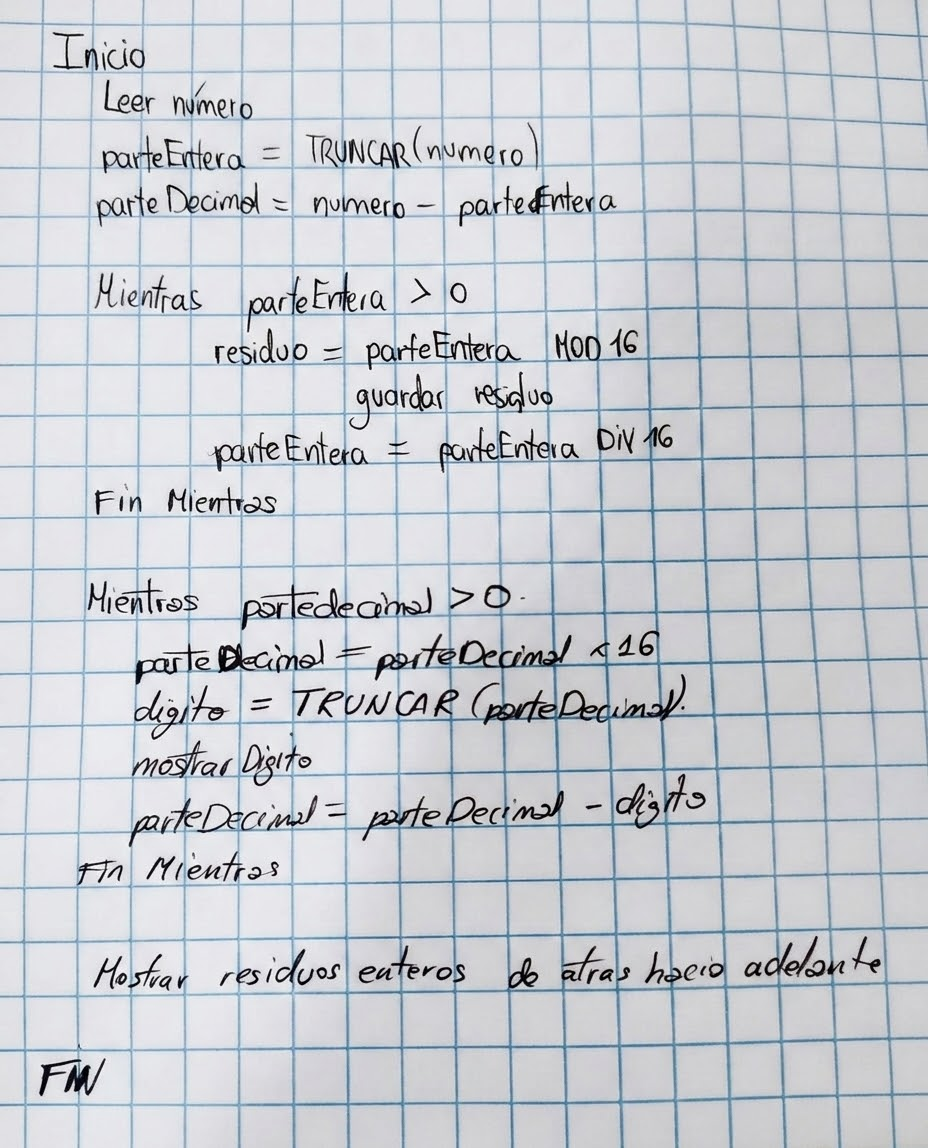 Inicio
Leer número
parteEntera = TRUNCAR(numero)
parteDecimal = numero - parteEntera
Mientras parteEntera > 0
residuo = parteEntera MOD 16
guardar residuo
parteEntera = parteEntera DIV 16
Fin Mientras
Mientras partedecimal > 0.
parteDecimal = parteDecimal * 16
digito = TRUNCAR (parteDecimal).
mostrar Digito
parteDecimal = parteDecimal - digito
Fin Mientras
Mostrar residuos enteros de atras hacia adelante
FIN